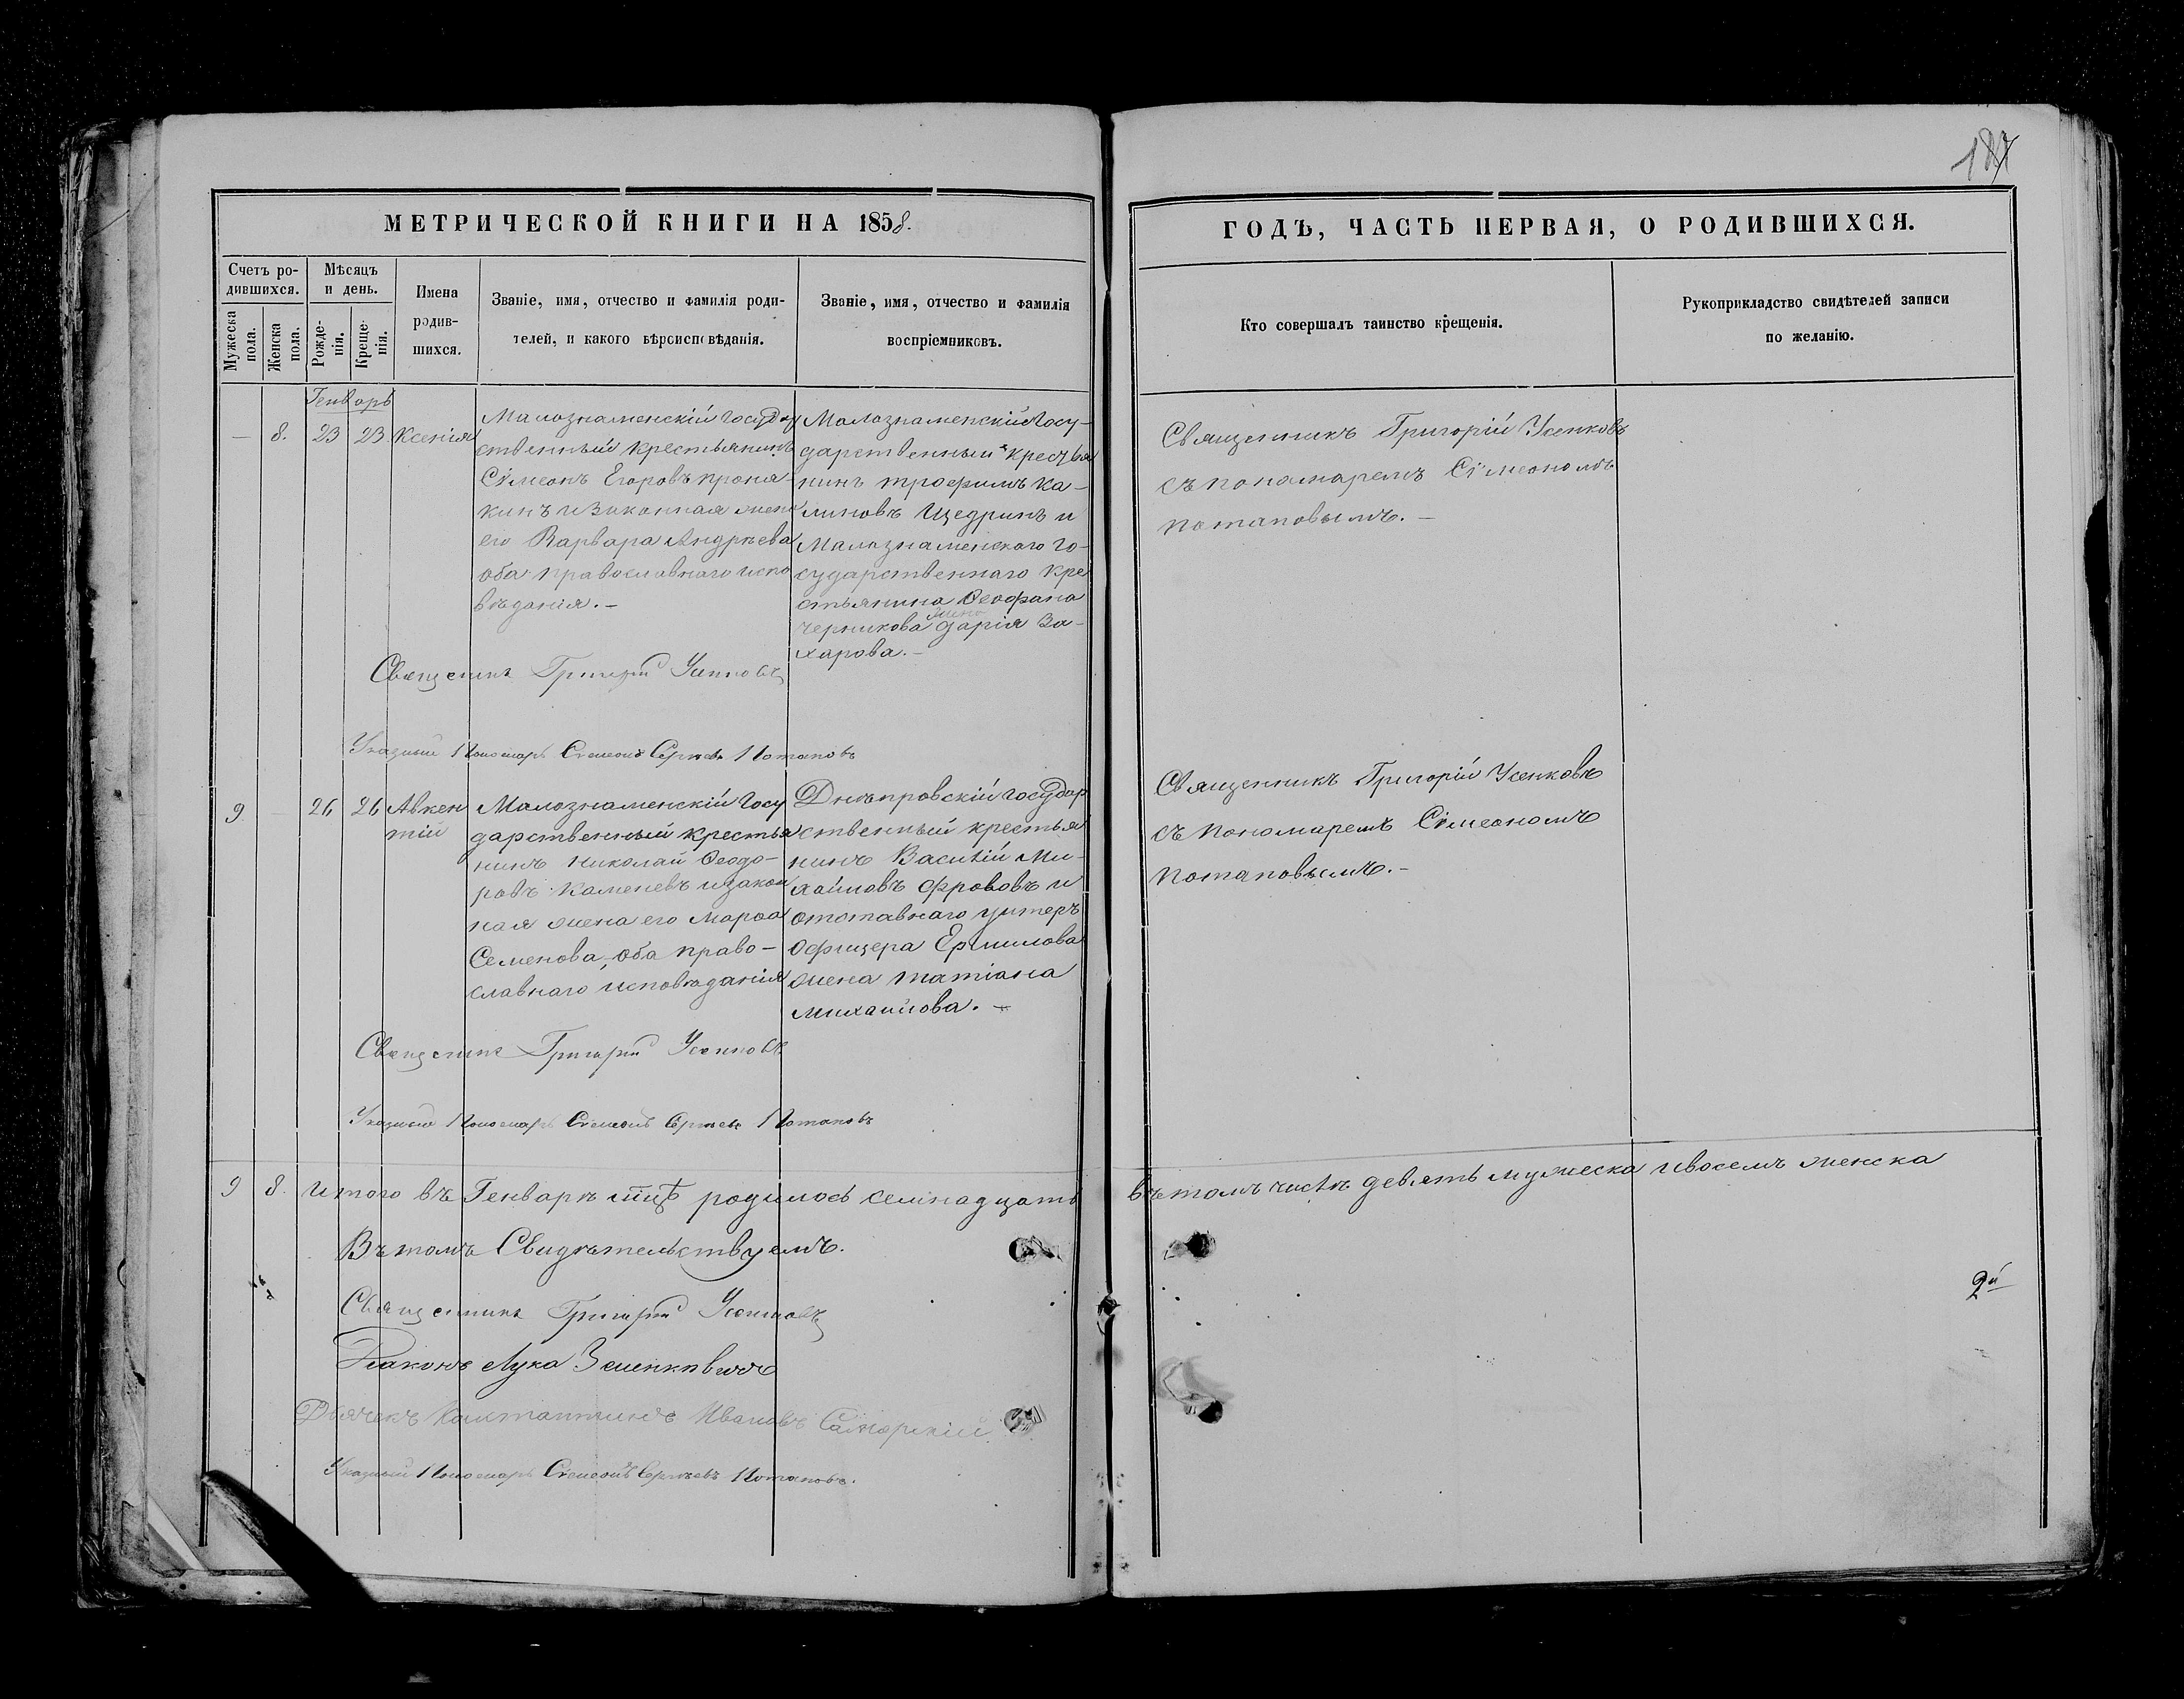 187
МЕТРИЧЕСКОЙ КНИГИ НА 1858.
ГОДЪ, ЧАСТЬ ПЕРВАЯ, О РОДИВШИХСЯ.
Счетъ ро-
дившихся.
Мужеска пола.
Женска пола.
Мѣсяцъ
и день.
Рожде-
нія.
Креще-
нія.
Имена
родив-
шихся.
Званіе, имя, отчество и фамилія роди-
телей, и какого вѣроисповѣданія.
Званіе, имя, отчество и фамилія
воспріемниковъ.
Кто совершалъ таинство крещенія.
Рукоприкладство свидѣтелей записи
по желанію.
Генварь
— 8. 23 23 Ксенія
Малознаменскій Государ
ственный крестьянинъ
Сѵмеонъ Егоровъ Проня-
кинъ и Законная жена
его Варвара Андрѣева
оба православнаго испо
вѣданія. –
Малознаменскій Госу-
дарственный крестья
нинъ трофимъ Ка-
линовъ Щедринъ и
Малознаменскаго Го-
сударственнаго кре
стьянина Ѳеофана
Черникова жена дарія За-
харова. –
Священникъ Григорій Усенковъ
съ пономаремъ Сѵмеономъ
Потаповымъ. –
Священникъ Григорій Усенковъ
Указный Пономарь Сѵмеонъ Сергѣевъ Потаповъ
9 – 26 26 Авкен
тій
Малознаменскій Госу
дарственный крестья
нинъ Николай Ѳеодо-
ровъ Каменевъ и закон
ная жена его Марѳа
Семенова, оба право-
славнаго исповѣданія
Днѣпровскій Государ
ственный крестья
нинъ Василій Ми-
хайловъ Фроловъ и
отставнаго унтеръ
Офицера Ермилова
жена татіана
Михайлова. –
Священникъ Григорій Усенковъ
съ Пономаремъ Сѵмеономъ
Потаповымъ. –
Священникъ Григорій Усенковъ
Указный Пономарь Сѵмеонъ Сергѣевъ Потаповъ
9 8. Итого въ Генварѣ мцѣ родилось семнадцать въ томъ числѣ девять мужеска и восемь женска
Въ томъ Свидѣтельствуемъ.
Священникъ Григорій Усенковъ
2й
Діаконъ Лука
Дьячекъ Константинъ Ивановъ Самарскій
Указный Пономарь Сѵмеонъ Сергѣевъ Потаповъ.